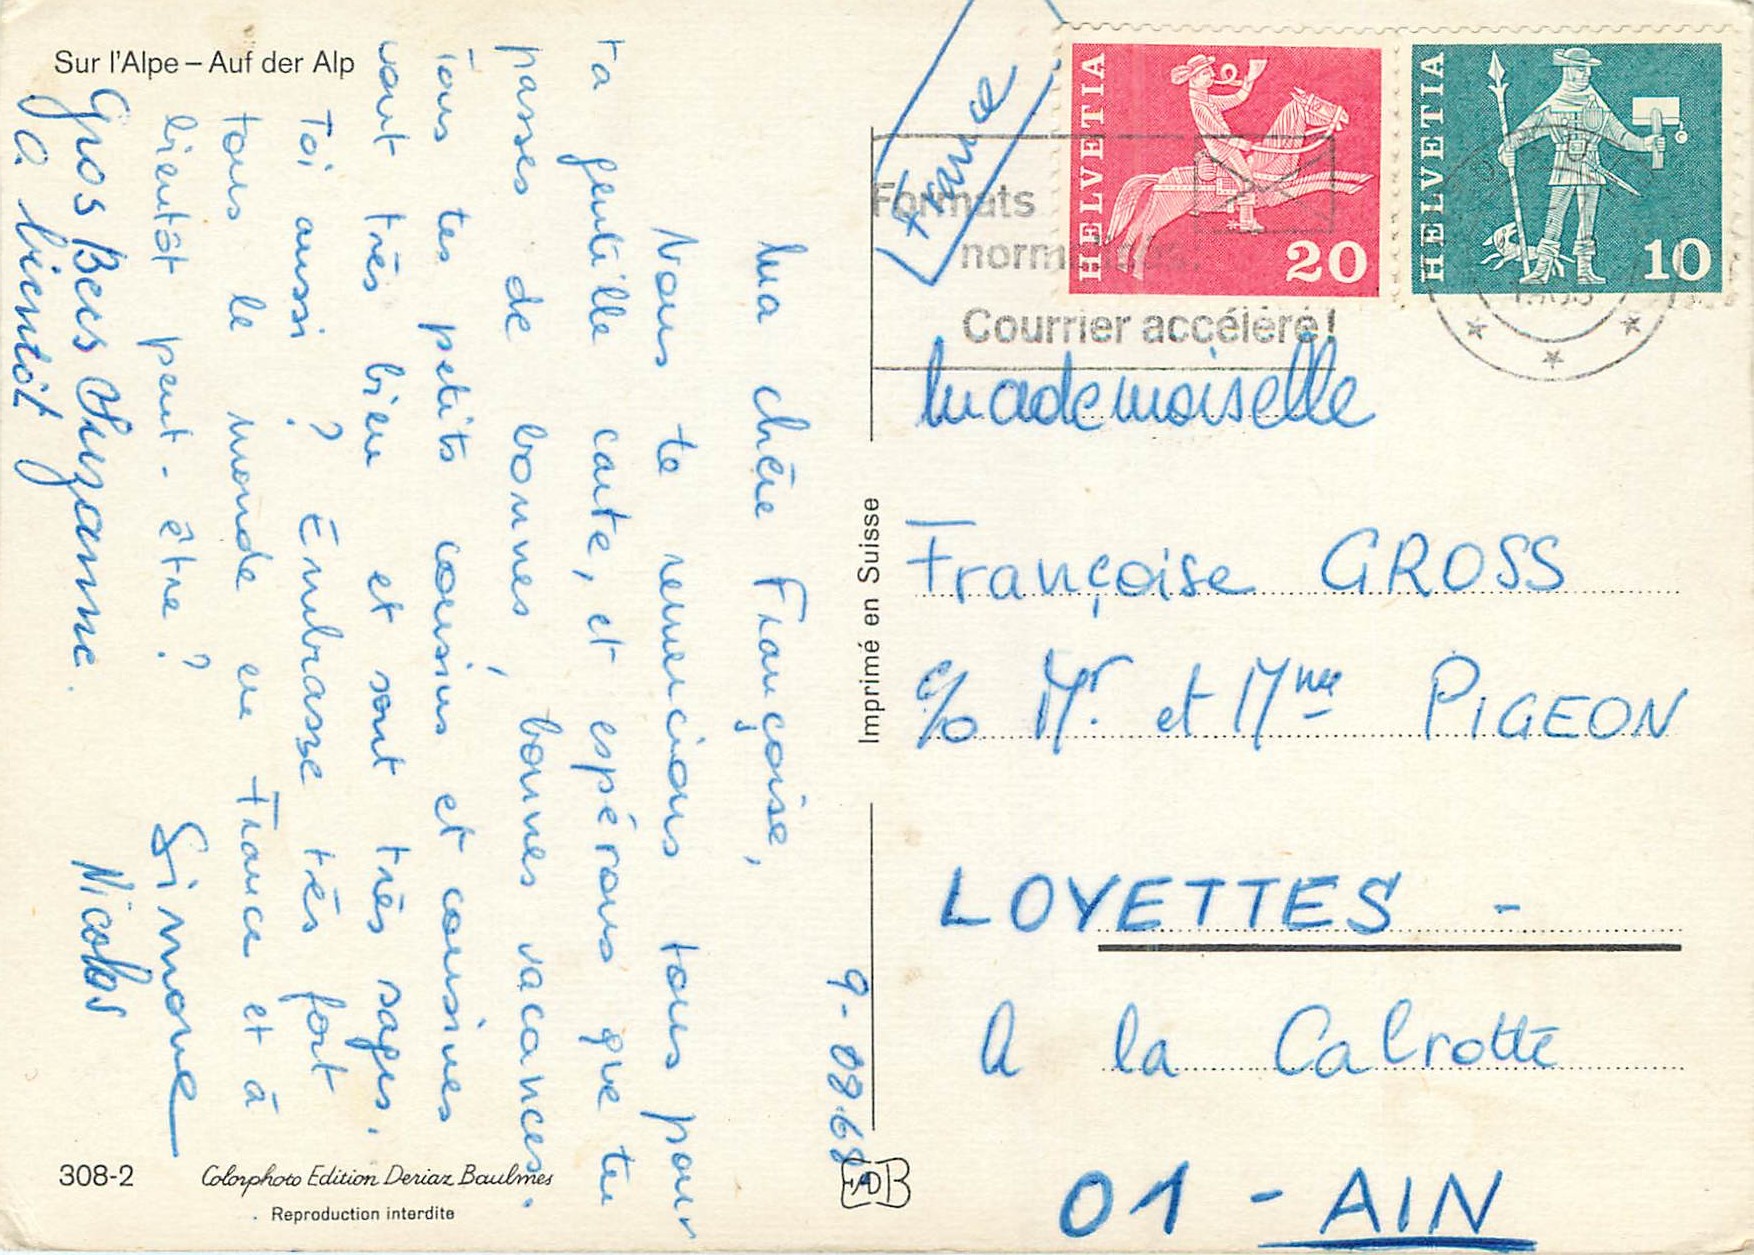 Sur l'Alpe – Auf der Alp
9-08-68
Ma chère Françoise,
Nous te remercions tous pour
ta gentille carte, et espérons que tu
passes de bonnes, bonnes vacances.
Tous tes petits cousins et cousines
vont très bien et sont très sages.
Toi aussi ? Embrasse très fort
tous le monde en France et à
bientôt peut-être ?
Simone
Gros Becs Suzanne.
Nicolas
à bientôt
308-2
Colorphoto Edition Deriaz Baulmes
Reproduction interdite
Imprimé en Suisse
EDB
France
HELVETIA
20
HELVETIA
10
Formats
Courrier accéléré!
Mademoiselle
Françoise GROSS
c/o Mr. et Mme PIGEON
LOYETTES -
A la Calrotte
01 - AIN